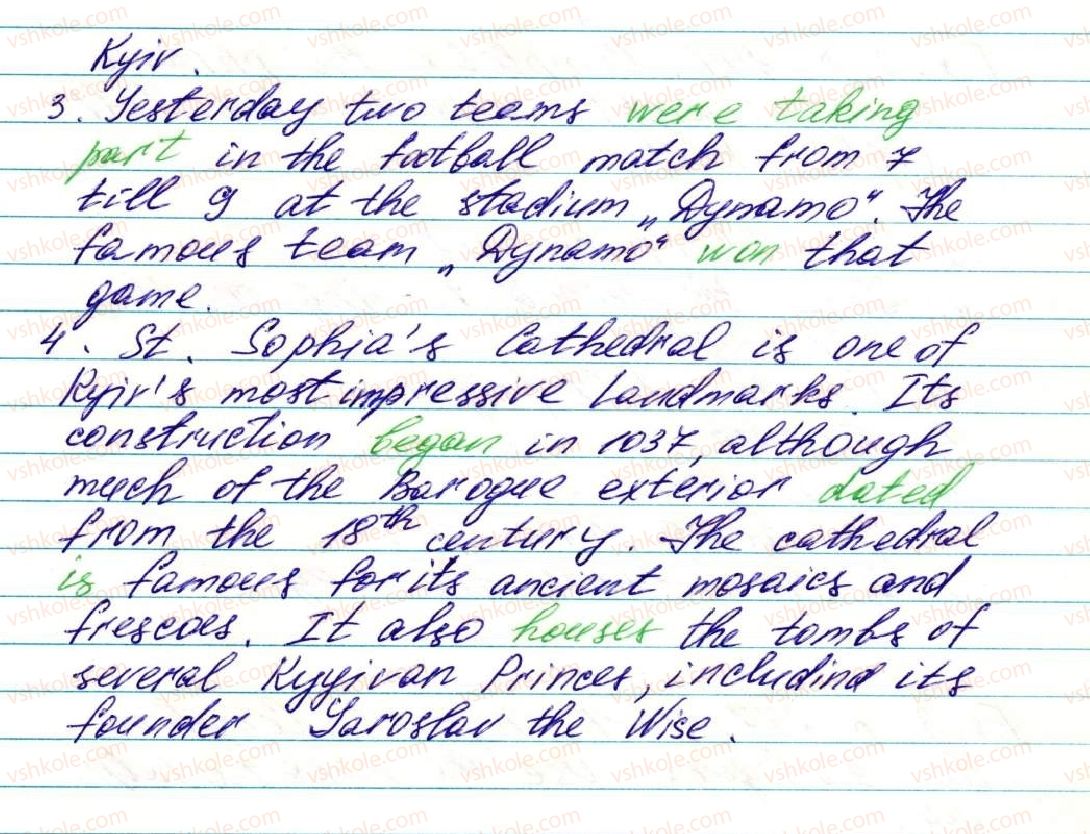 Kyiv.
3. Yesterday two teams were taking
part in the football match from 7
till 9 at the stadium „Dynamo“. The
famous team „Dynamo“ won that
game.
4. St. Sophia's Cathedral is one of
Kyiv's most impressive landmarks. Its
construction began in 1037, although
much of the Baroque exterior dated
from the 18th century. The cathedral
is famous for its ancient mosaics and
frescoes. It also houses the tombs of
several Kyyivan Princes, including its
founder Yaroslav the Wise.